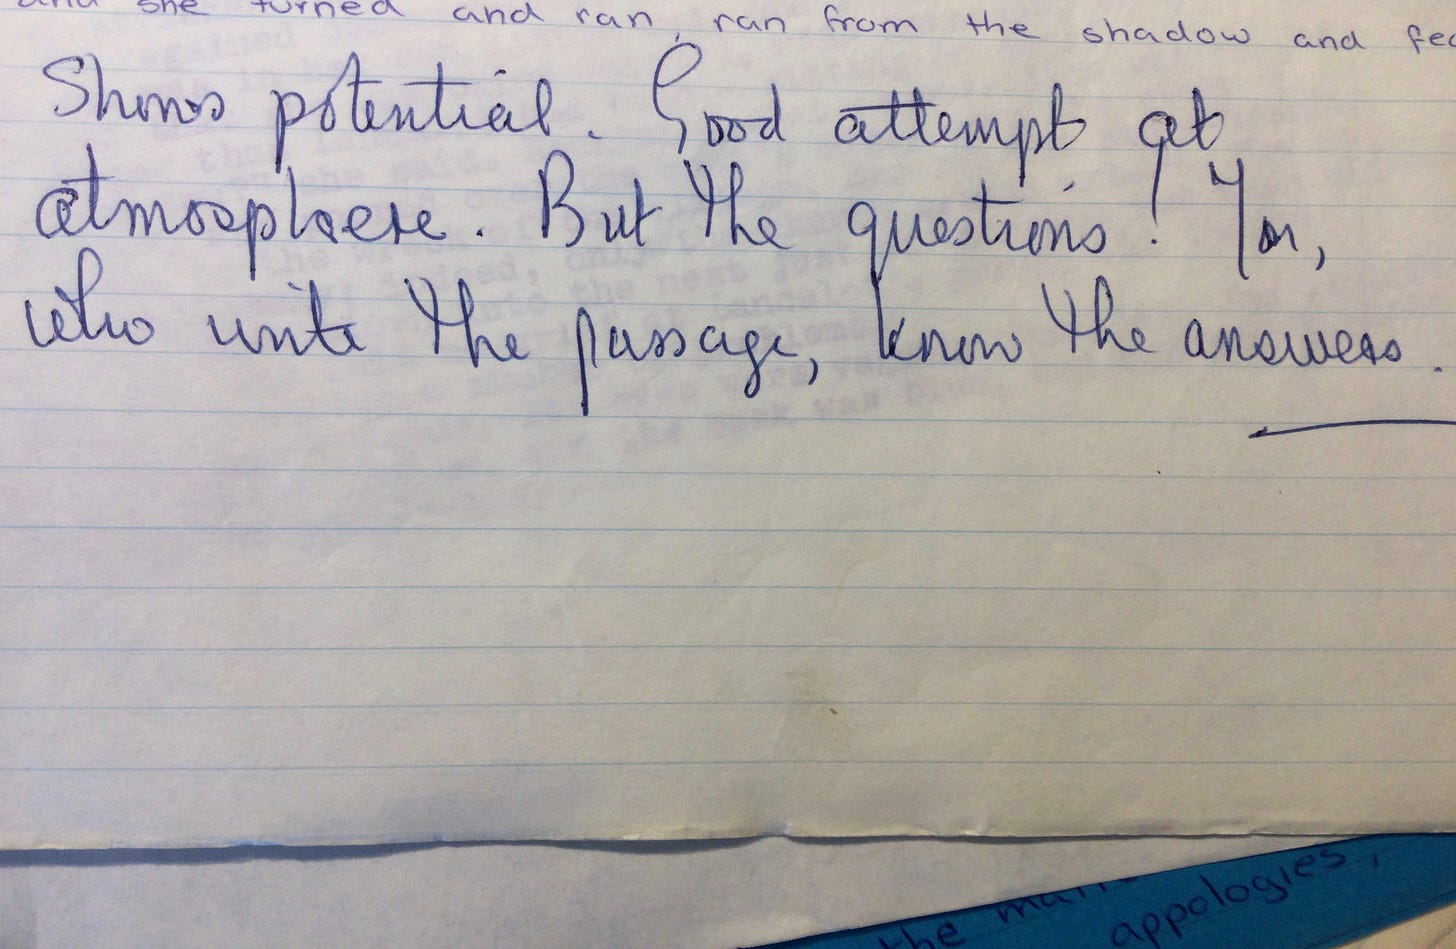 and she turned and ran, ran from the shadow and fea
Shows potential. Good attempt at
atmosphere. But the questions! You,
who write the passage, know the answers.
the
appologies,